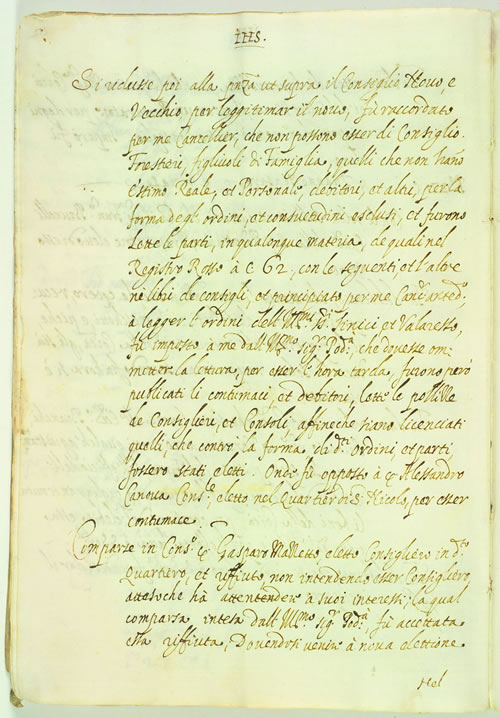 1115.
Si ridusse poi alla pnza ut supra il Consiglio Novo, e
Vecchio, per leggitimar il novo, fù raccordato
per me Cancellier, che non possono esser di Consiglio.
Forestieri, figliuoli di Famiglia, quelli che non hano
estimo Reale, et Personale, debitori, et altri, per la
forma degl' ordini, et consuetudini esclusi, et furono
Lette le parti, in qualonque materia, de quali nel
Registro Rosso à c. 62, con le seguenti et l'altre
ne libri de consigli, et principiato per me Canc. anted.
à legger l'ordini dell' Illmi SS. Sinici et Valaresso,
fù imposto à me dall' Illmo sigr Podà, che dovesse om=
metter la lettura, per esser l'hora tarda, furono però
publicati li contumaci, et debitori, lette le polliZe
de Consiglieri, et Consoli, affineche siano licenciati
quelli, che contro la forma di dti ordini et parti
fossero stati eletti. Onde fù opposto à Alessandro
Canova Conse, eletto nel Quartier di S. Nicolò, per esser
contumace.
Comparse in Conso Gasparo Malletto eletto Consigliere in dto
Quartiero, et riffiutò non intendendo esser Consigliero,
attesoche hà attentendere à suoi interessi; la qual
comparsa intesa dall' Illmo sigr Podà fù accettata
essa riffiuta, Dovendosi venire à nova elettione.
Nel